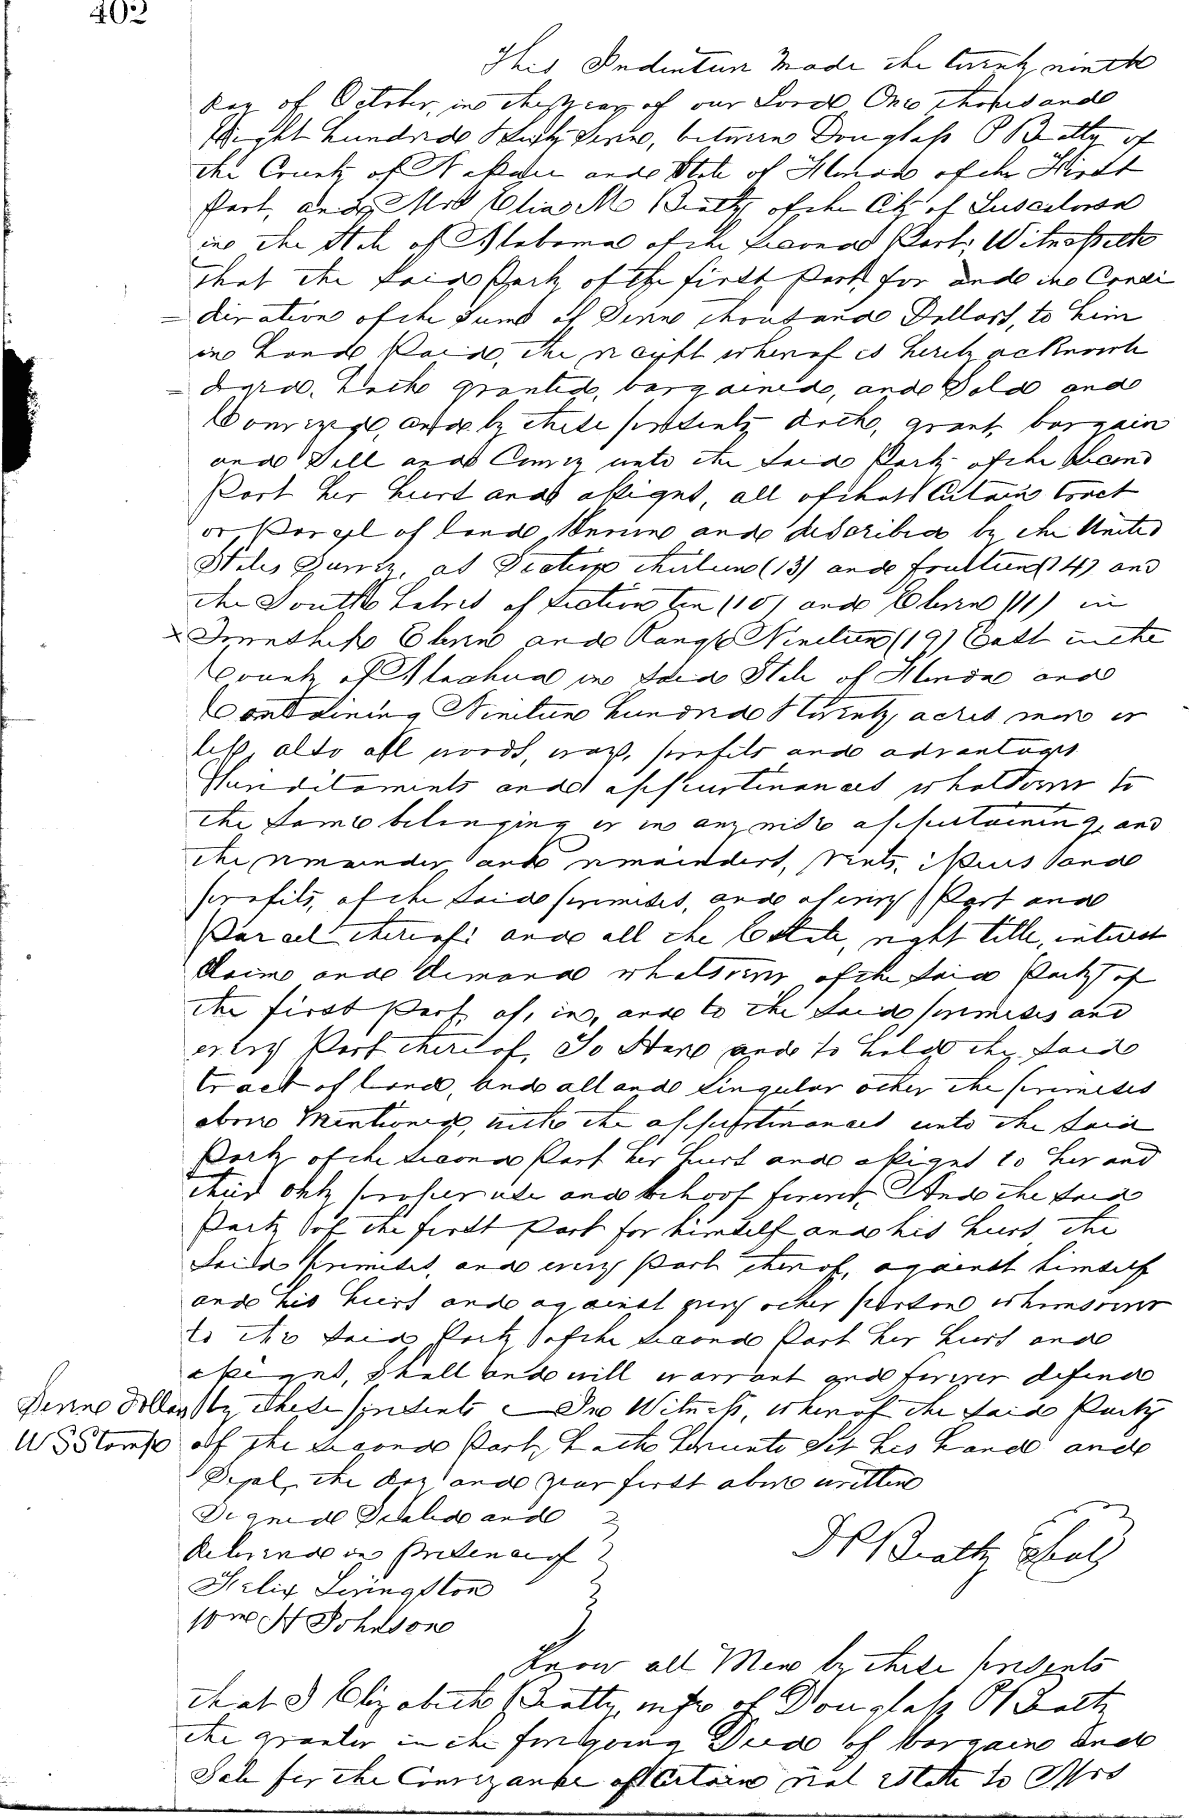 402
This Indenture made the twenty ninth
day of October, in the year of our Lord One thousand
Eight hundred Sixty Seven, between Douglass P Beatty of
the County of Nassau and State of Florida of the First
Part, and Mrs Eliza M Beatty of the City of Tuscaloosa
in the State of Alabama of the Second Part: Witnesseth
that the said Party of the first Part for and in Consi
= deration of the sum of Seven thousand Dollars, to him
in hand Paid, the receipt whereof is hereby acknowle
= dged. hath granted, bargained, and Sold and
Conveyed, and by these presents doth, grant, bargain
and Sell and Convey unto the said Party of the Second
Part her heirs and assigns, all of that Certain tract
or Parcel of land known and described by the United
States Survey, as Section thirteen (13) and fourteen (14) and
the South halves of section ten (10) and Eleven (11) in
x Township Eleven and Range Nineteen (19) East in the
County of Alachua in said State of Florida and
Containing Nineteen hundred & twenty acres more or
less, also all woods, ways, profits and advantages
Hereditaments and appurtenances whatsoever to
the same belonging or in any wise appertaining, and
the remainder and remainders, rents, issues and
profits, of the said premises, and of every Part and
Parcel thereof: and all the Estate, right title, interest
Claim and demand whatsoever of the said Party of
the first Part, of, in, and to the said premises and
every Part thereof, To Have and to hold the said
tract of land, and all and singular other the premises
above mentioned, with the appurtenances unto the said
Party of the second Part her heirs and assigns to her and
their only proper use and behoof forever, And the said
Party of the first Part for himself and his heirs, the
said premises, and every Part thereof, against himself
and his heirs and against every other person whomsoever
to the said Party of the second Part her heirs and
assigns, shall and will warrant and forever defend
Seven Dollars by these presents In Witness, whereof the said Party
U S Stamp of the second Part, hath hereunto set his hand and
Seal, the day and year first above written
Signed Sealed and
delivered in presence of
D P Beatty Seal
Felix Livingston
Wm H Johnson
Know all Men by these presents
that I Elizabeth Beatty, wife of Douglass P Beatty
the grantor in the foregoing Deed of bargain and
Sale for the Conveyance of Certain real estate to Mrs